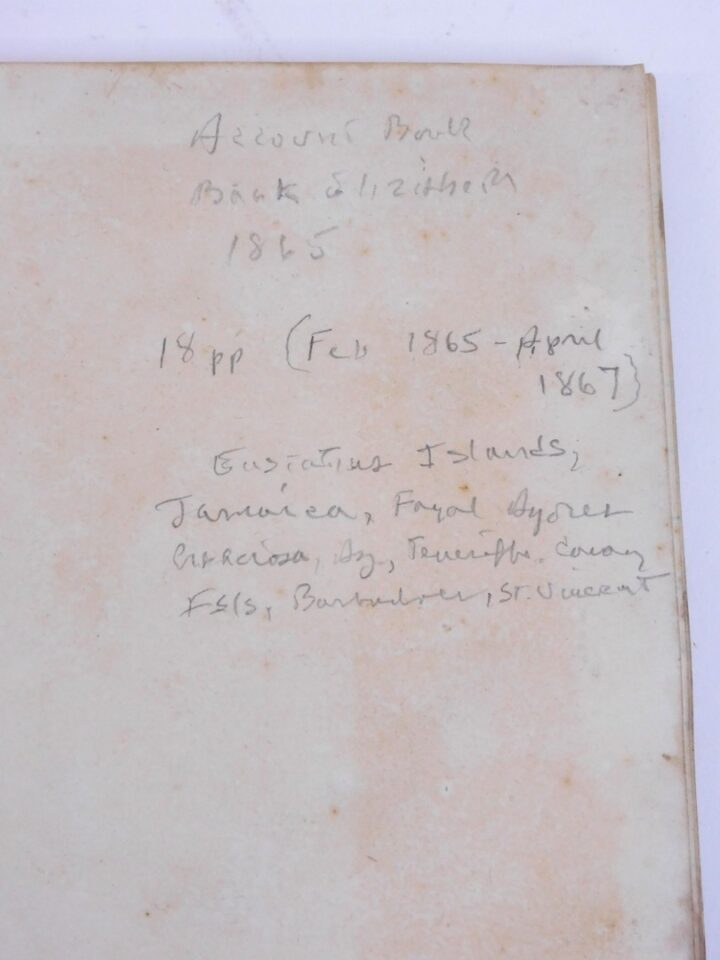 Account Book
Bark Elizabeth
1865
18 pp (Feb 1865 - April
1867)
Eustatius Islands,
Jamaica, Fayal Azores
Graciosa, Az, Teneriffe. Canary
Isls, Barbadoes, St. Vincent